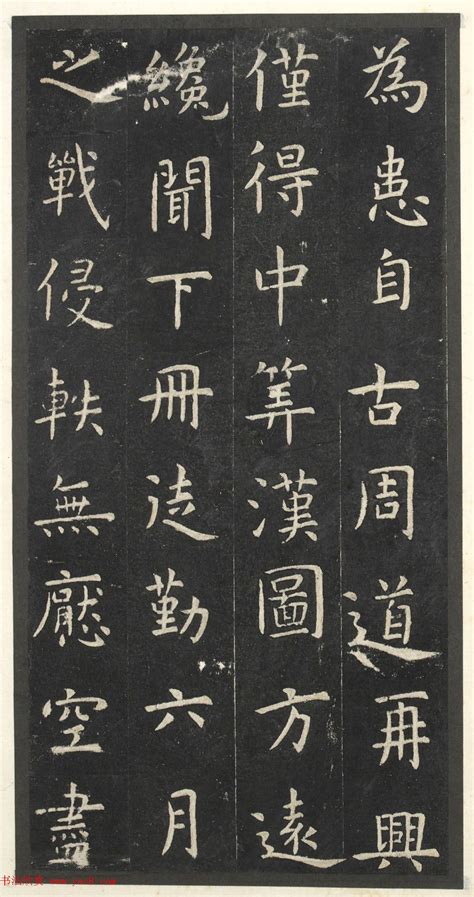 為患自古周道再興
僅得中筭漢圖方遠
纔聞下冊徒勤六月
之戰侵軼無懕空盡
书法欣赏